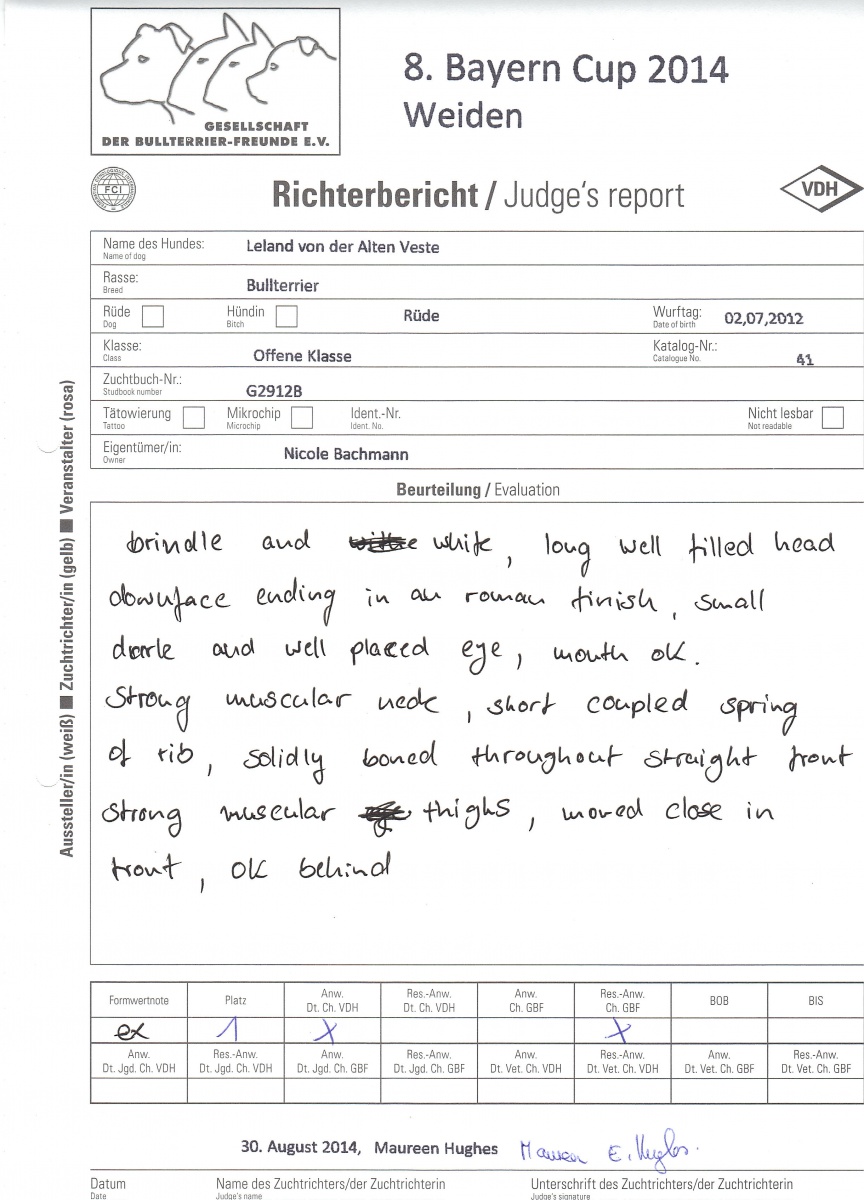 GESELLSCHAFT
DER BULLTERRIER-FREUNDE E.V.
8. Bayern Cup 2014
Weiden
FCI
Richterbericht / Judge's report
VDH
Name des Hundes: Leland von der Alten Veste
Name of dog
Rasse: Bullterrier
Breed
Rüde Hündin Rüde Wurftag: 02,07,2012
Dog Bitch Date of birth
Klasse: Offene Klasse Katalog-Nr.: 41
Class Catalogue No.
Zuchtbuch-Nr.: G2912B
Studbook number
Tätowierung Mikrochip Ident.-Nr. Nicht lesbar
Tattoo Microchip Ident. No. Not readable
Eigentümer/in: Nicole Bachmann
Owner
Aussteller/in (weiß) ■ Zuchtrichter/in (gelb) ■ Veranstalter (rosa)
Beurteilung / Evaluation
brindle and white, long well filled head
downface ending in an roman finish, small
dark and well placed eye, mouth ok.
Strong muscular neck, short coupled spring
of rib, solidly boned throughout straight front
strong muscular thighs, moved close in
front, ok behind
Formwertnote Platz Anw. Dt. Ch. VDH Res.-Anw. Dt. Ch. VDH Anw. Ch. GBF Res.-Anw. Ch. GBF BOB BIS
ex 1 X X
Anw. Dt. Jgd. Ch. VDH Res.-Anw. Dt. Jgd. Ch. VDH Anw. Dt. Jgd. Ch. GBF Res.-Anw. Dt. Jgd. Ch. GBF Anw. Dt. Vet. Ch. VDH Res.-Anw. Dt. Vet. Ch. VDH Anw. Dt. Vet. Ch. GBF Res.-Anw. Dt. Vet. Ch. GBF
30. August 2014, Maureen Hughes Maureen E. Hughes.
Datum Name des Zuchtrichters/der Zuchtrichterin Unterschrift des Zuchtrichters/der Zuchtrichterin
Date Judge's name Judge's signature